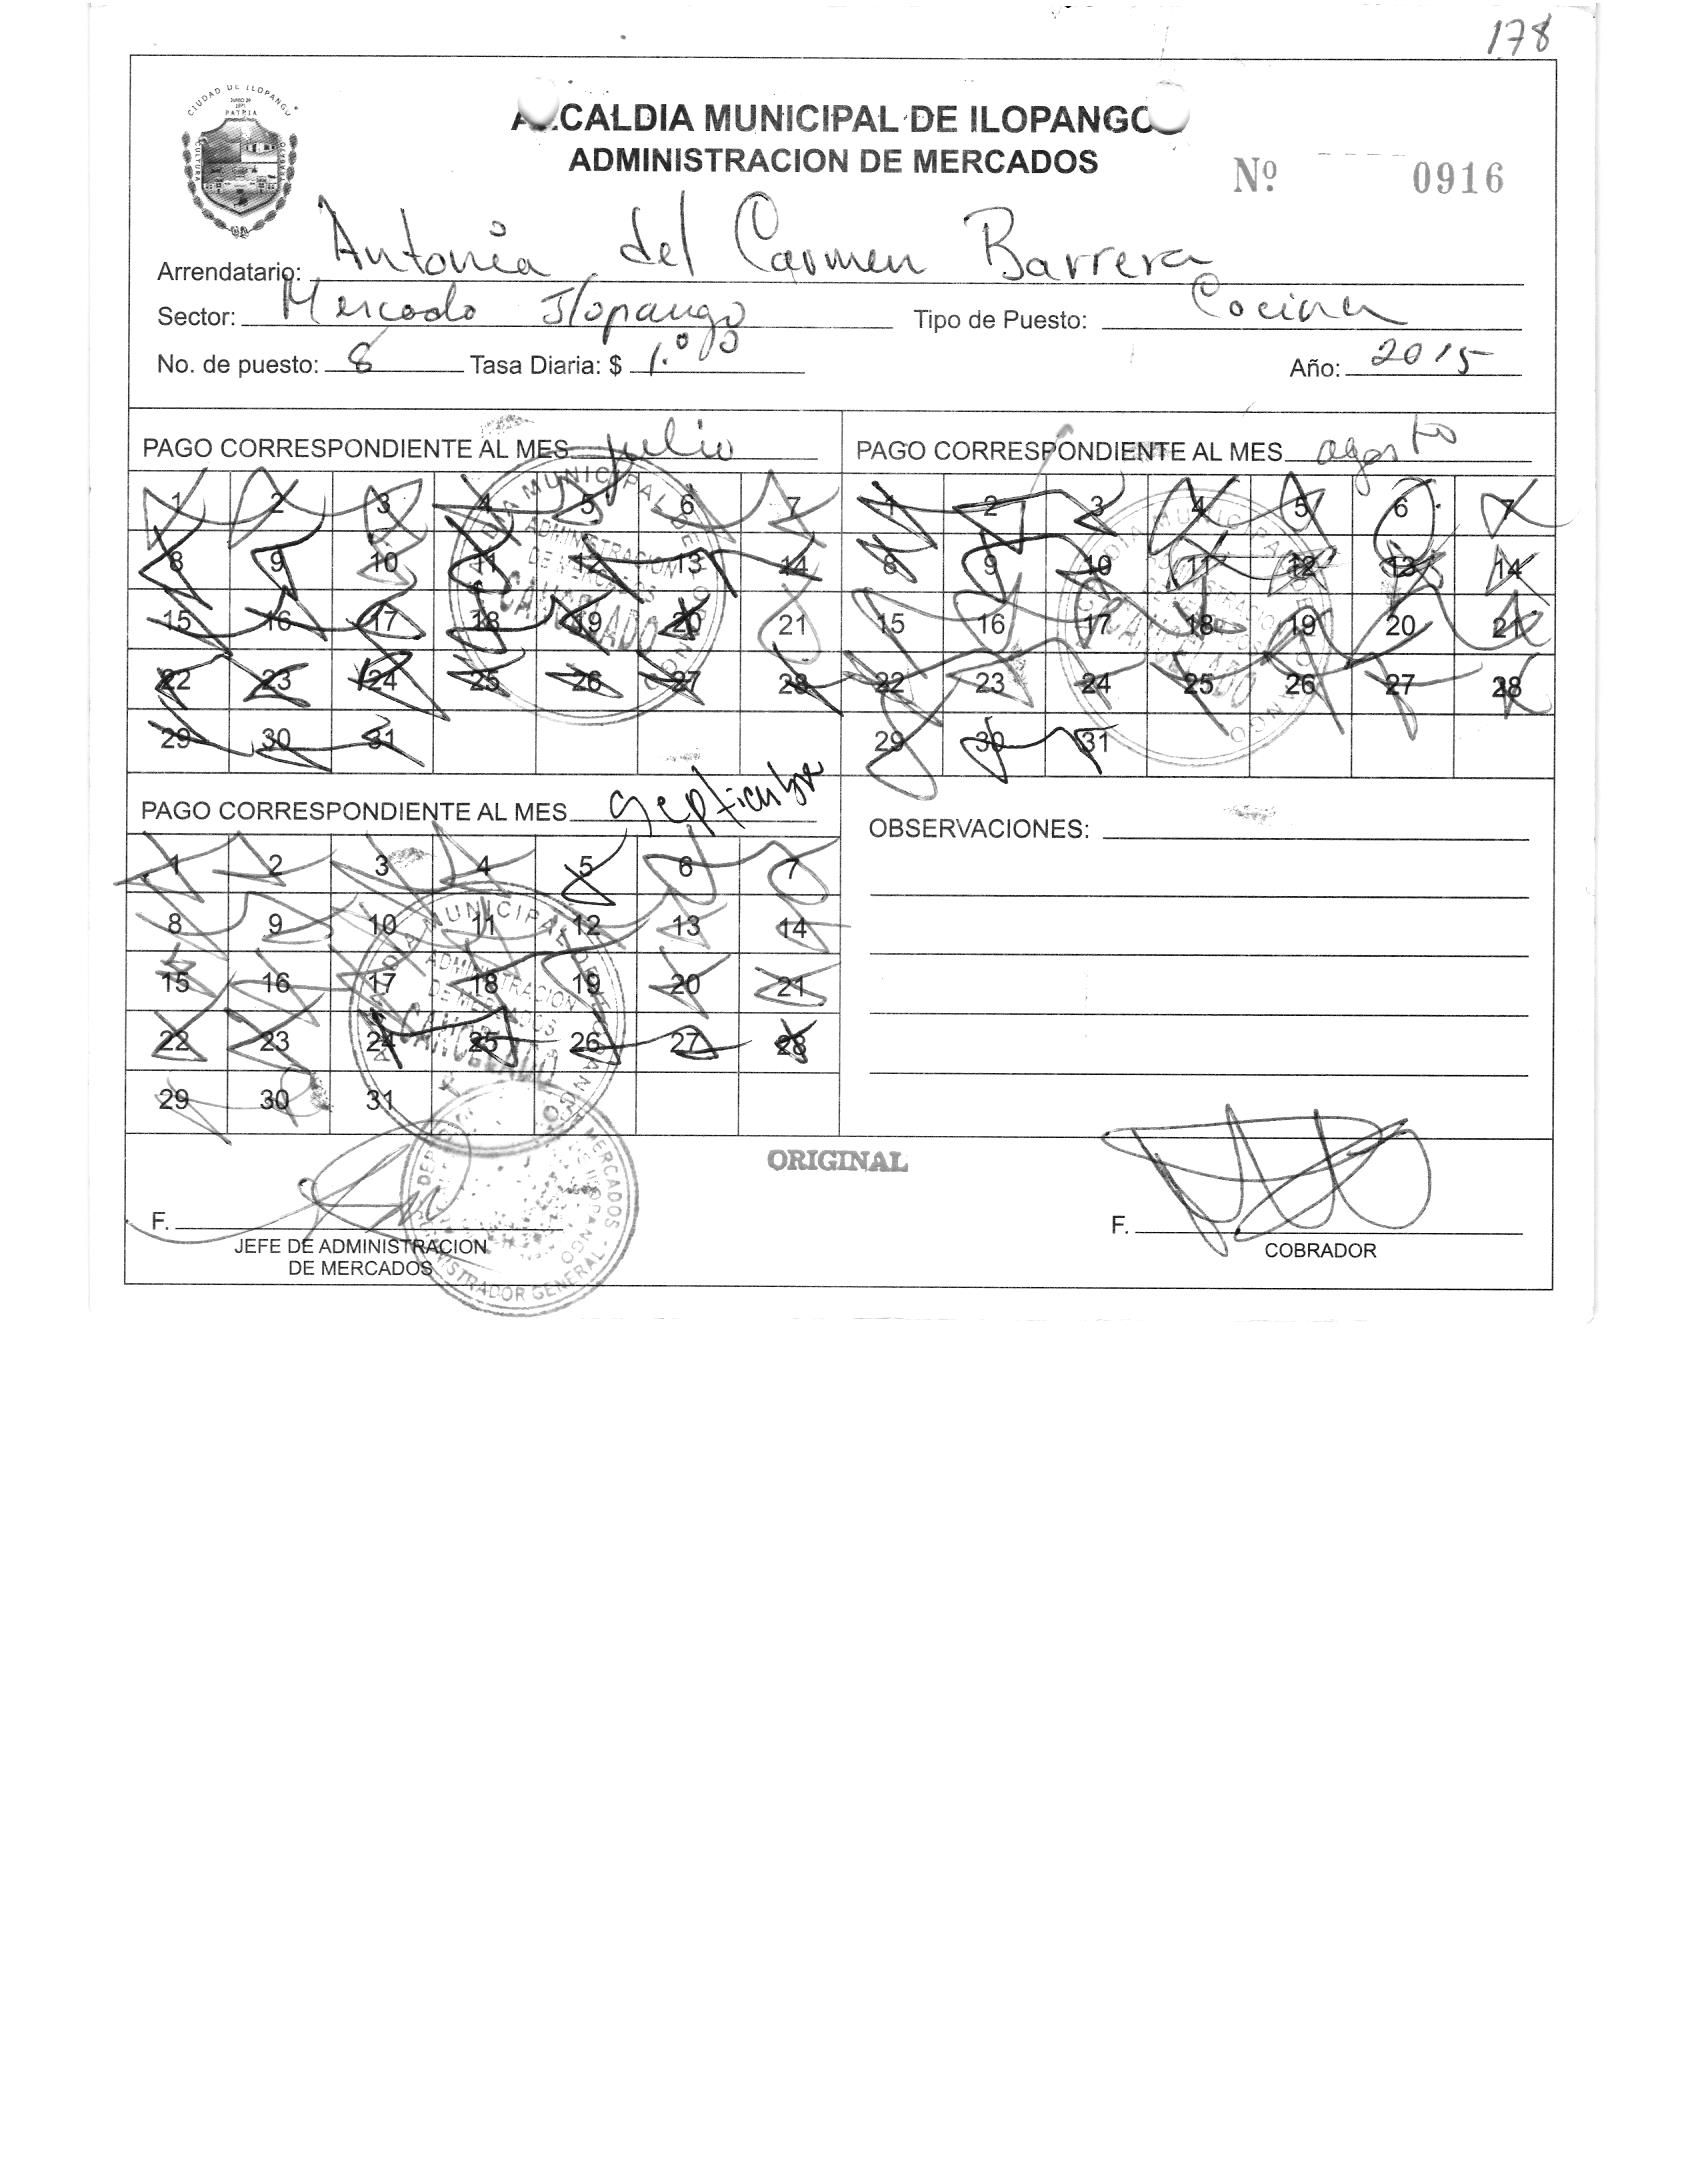 178
CIUDAD DE ILOPANGO
PATRIA
CULTURA
ALCALDIA MUNICIPAL DE ILOPANGO
ADMINISTRACION DE MERCADOS
Nº 0916
Arrendatario: Antonia del Carmen Barrera
Sector: Mercado Ilopango Tipo de Puesto: Cocina
No. de puesto: 8 Tasa Diaria: $ 1.00 Año: 2015
PAGO CORRESPONDIENTE AL MES julio
1 2 3 4 5 6 7
8 9 10 11 12 13 14
15 16 17 18 19 20 21
22 23 24 25 26 27 28
29 30 31
ALCALDIA MUNICIPAL DE ILOPANGO
ADMINISTRACION
DE MERCADOS
CANCELADO
PAGO CORRESPONDIENTE AL MES agosto
1 2 3 4 5 6 7
8 9 10 11 12 13 14
15 16 17 18 19 20 21
22 23 24 25 26 27 28
29 30 31
ALCALDIA MUNICIPAL DE ILOPANGO
ADMINISTRACION
DE MERCADOS
CANCELADO
PAGO CORRESPONDIENTE AL MES septiembre
1 2 3 4 5 6 7
8 9 10 11 12 13 14
15 16 17 18 19 20 21
22 23 24 25 26 27 28
29 30 31
ALCALDIA MUNICIPAL DE ILOPANGO
ADMINISTRACION
DE MERCADOS
CANCELADO
OBSERVACIONES:
ORIGINAL
F.
JEFE DE ADMINISTRACION
DE MERCADOS
MERCADOS
ADMINISTRADOR GENERAL
F.
COBRADOR